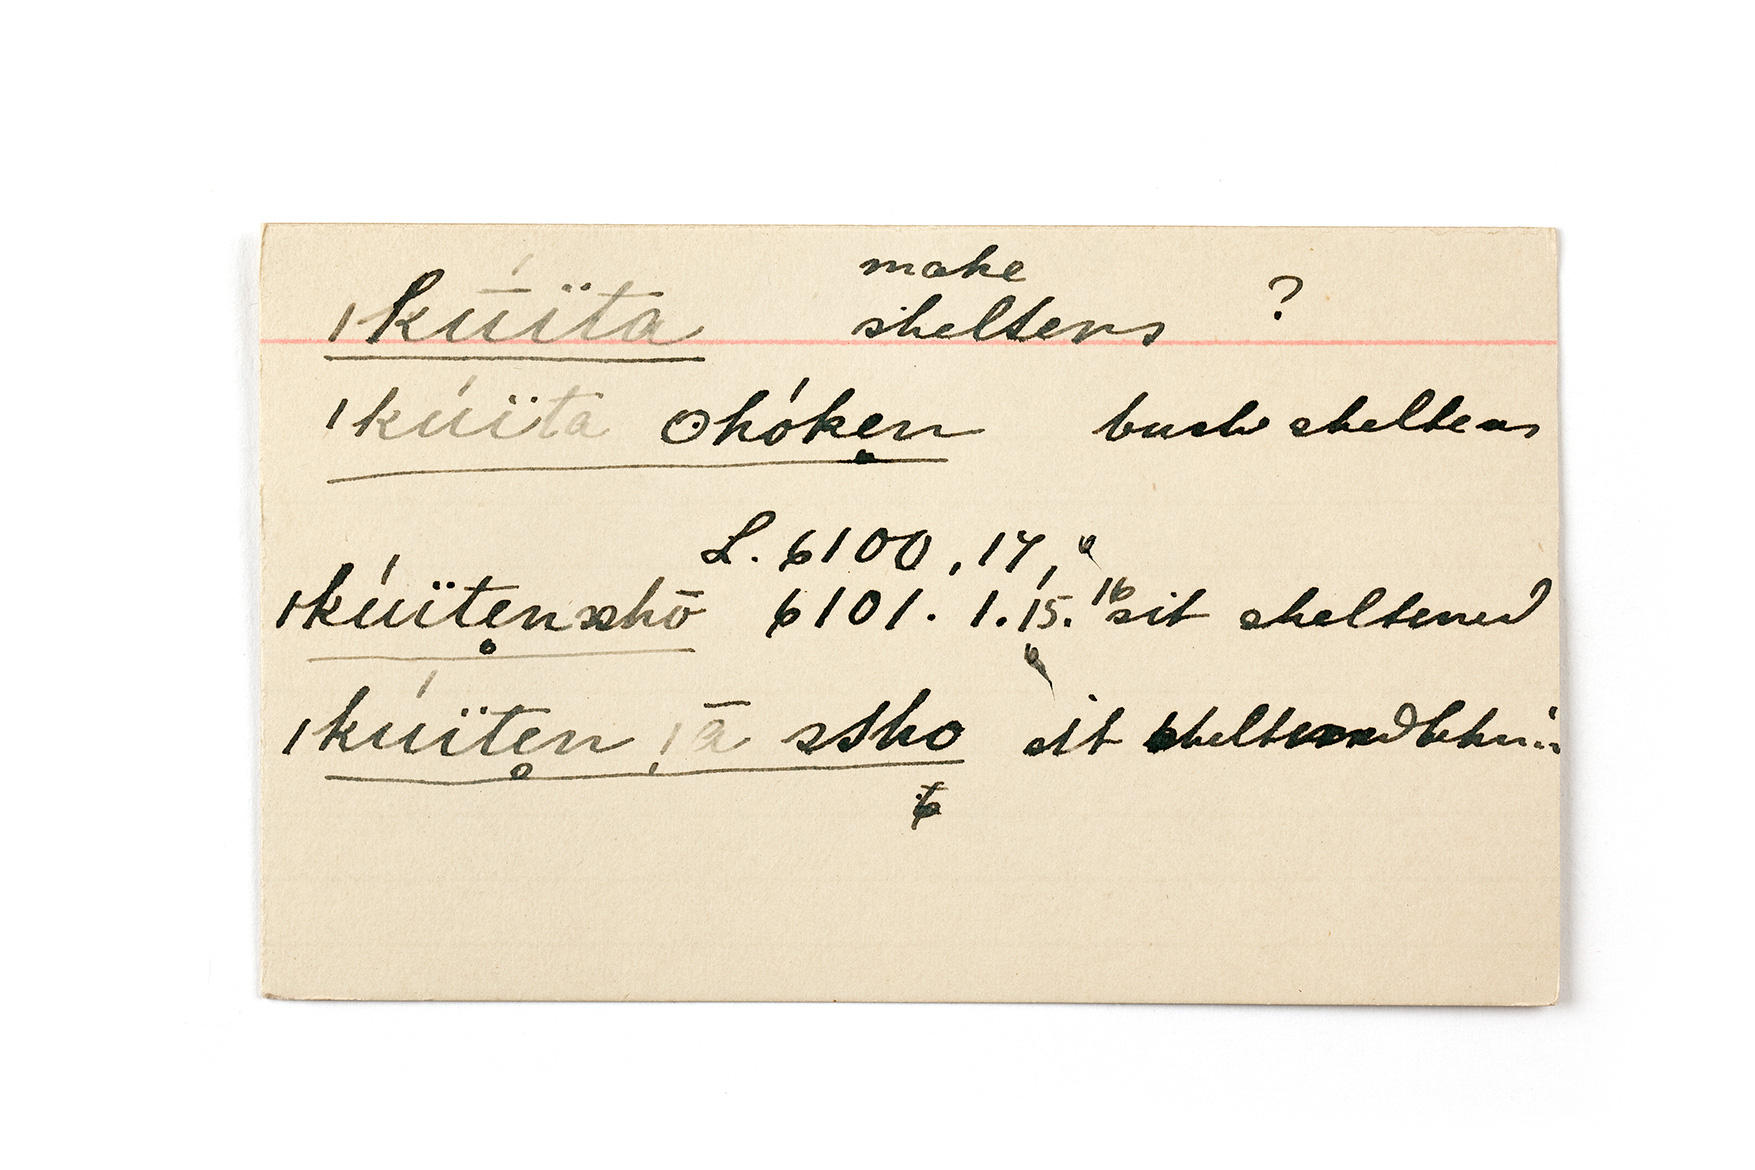 make
|kúïta shelters ?
|kúïta Ohóken bush shelters
L. 6100, 17,
|kúïten shō 6101. 1. 15. 16 sit sheltered
|kúïten |ā ssho sit sheltered